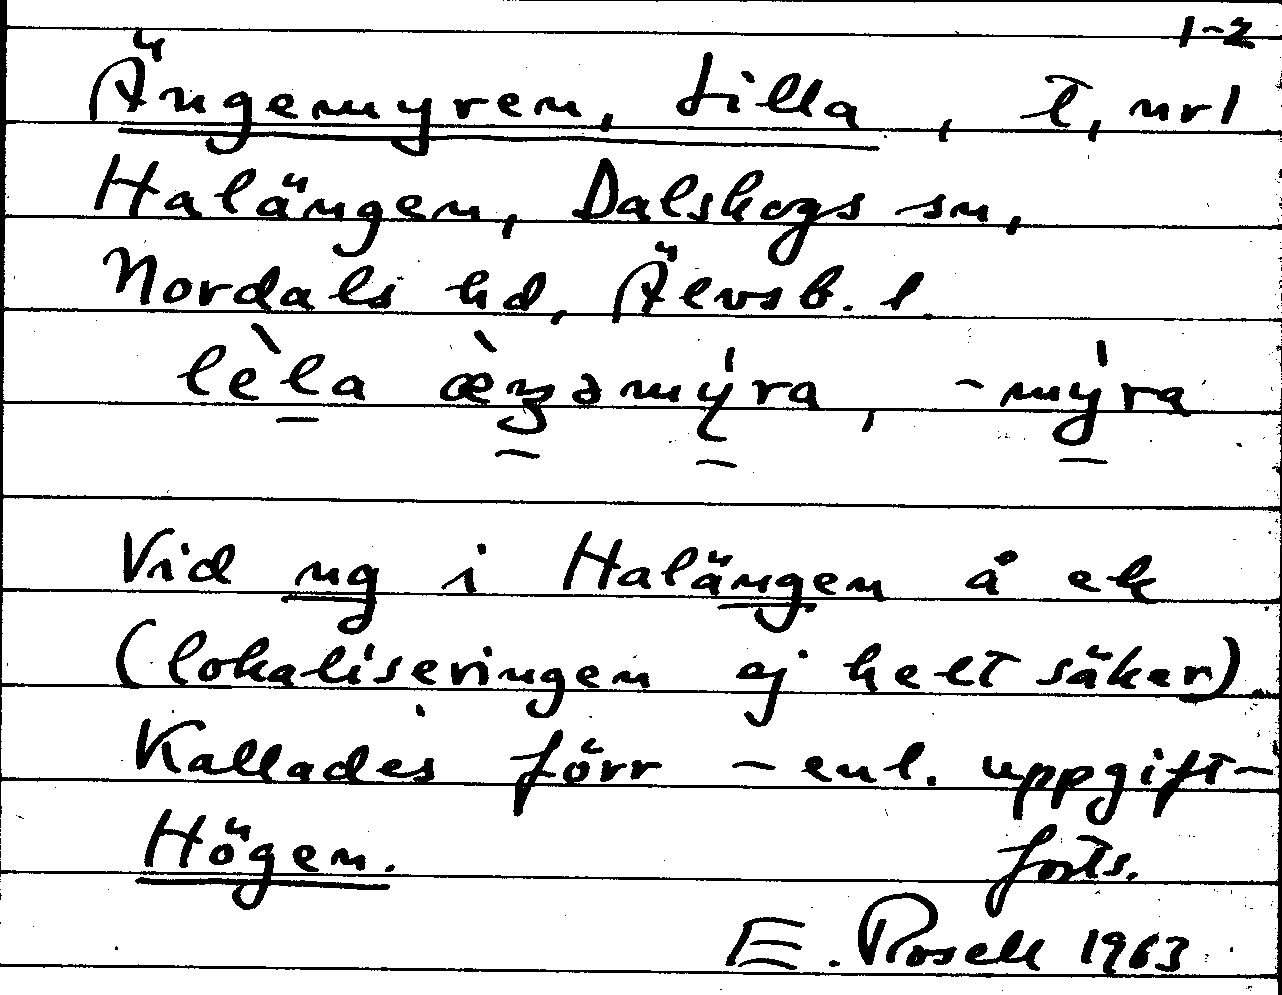 1-2
Ängemyren, Lilla, t, nr 1
Halängen, Dalskogs sn,
Nordals hd, Älvsb. l.
lèla æ̀ŋəmýra, -mýra
Vid ng i Halängen å ek
(lokaliseringen ej helt säker)
Kallades förr - enl. uppgift -
Högen. forts.
E. Rosell 1963